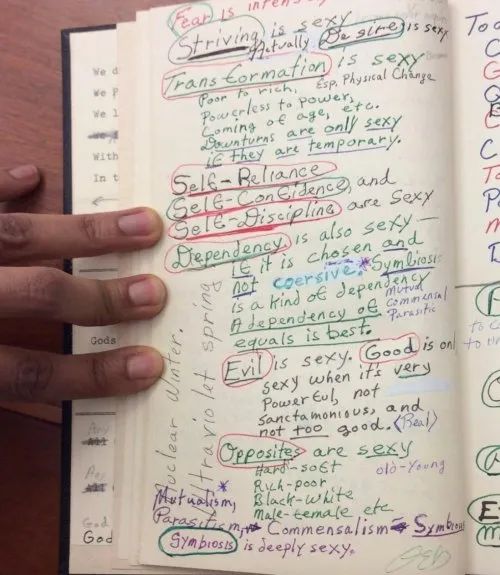 We d
We p
We l
With
In t
Gods
Any
All
Any
All
God
God
Fear is
Striving is sexy
Actually Desire is sexy
Transformation is sexy
Poor to rich, Esp. Physical Change
Powerless to power,
Coming of age, etc.
Downturns are only sexy
if they are temporary.
Self-Reliance
Self-Confidence, and
Self-Discipline are sexy
Dependency is also sexy—
If it is chosen and
not coersive. *Symbiosis
is a kind of dependency
Mutual
Commensal
Parasitic
A dependency of
equals is best.
Evil is sexy. Good is onl
sexy when it's very
Powerful, not
sanctamonious, and
not too good. (Real)
Opposites are sexy
Hard-soft old-young
Rich-poor
Black-white
Male-female etc.
Nuclear Winter.
Ultraviolet spring
Mutualism, *
Parasitism, Commensalism Symbios
Symbiosis is deeply sexy.